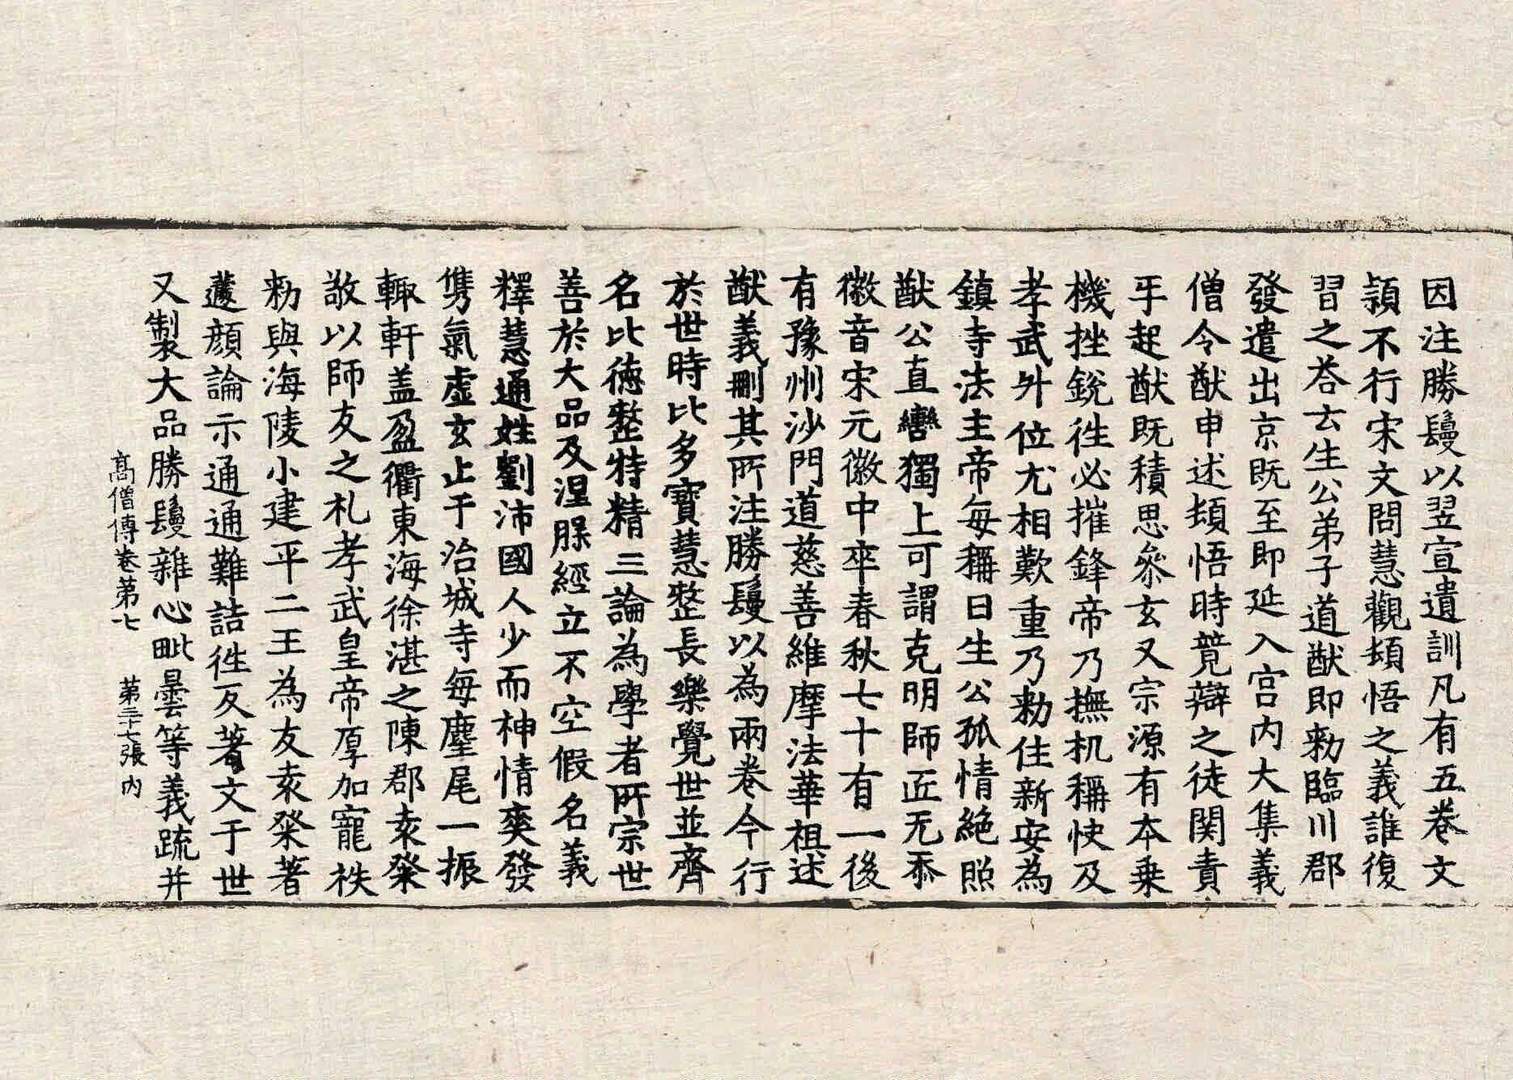 因注勝鬘以翌宣遺訓凡有五卷文
頴不行宋文問慧觀頓悟之義誰復
習之荅云生公弟子道猷即勑臨川郡
發遣出京既至即延入宮内大集義
僧令猷申述頓悟時竟辯之徒関責
㸦起猷既積思叅玄又宗源有本乗
機挫銳徃必摧鋒帝乃撫机稱快及
孝武外位尤相歎重乃勑住新安為
鎮寺法主帝每稱曰生公孤情絶照
猷公直轡獨上可謂克明師匠无忝
徽音宋元徽中卒春秋七十有一後
有豫州沙門道慈善維摩法華祖述
猷義刪其所注勝鬘以為兩卷今行
於世時比多寶慧整長樂覺世並齊
名比徳整特精三論為學者所宗世
善於大品及涅槃經立不空假名義
釋慧通姓劉沛國人少而神情爽發
儁氣虛玄止于治城寺每麈尾一振
輙軒盖盈衢東海徐湛之陳郡袁粲
敬以師友之礼孝武皇帝厚加寵秩
勑與海陵小建平二王為友袁粲著
蘧顔論示通通難詰徃反著文于世
又製大品勝鬘雜心毗曇等義疏并
高僧傳卷第七 第二十七張 内